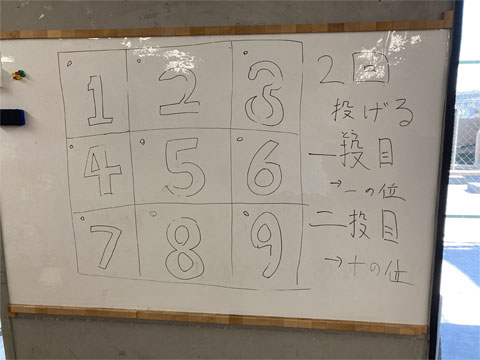 1 2 3
4 5 6
7 8 9
2回
投げる
一投目
とう
→一の位
二投目
→十の位